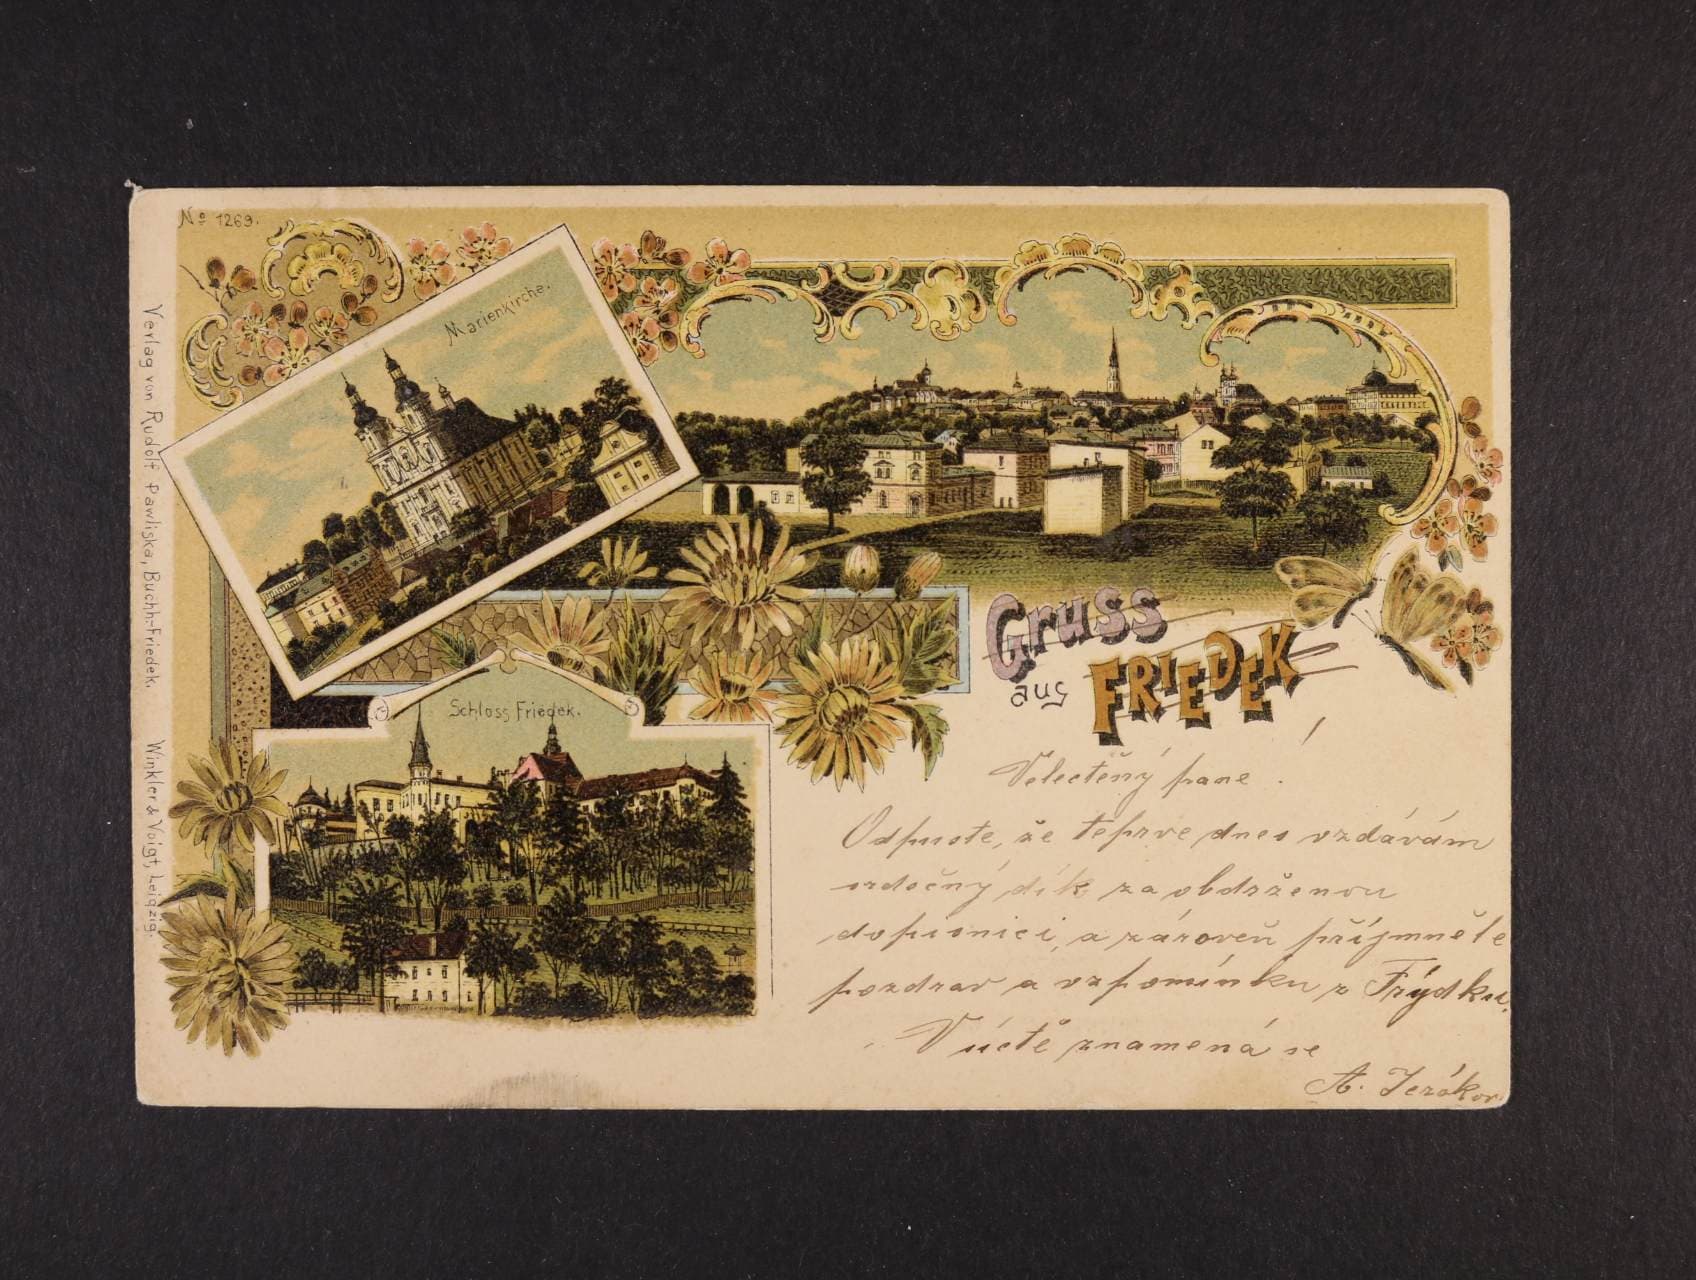 No 1269.
Marienkirche.
Verlag von Rudolf Pawliska, Buchh-Friedek.
Winkler & Voigt, Leipzig.
Schloss Friedek.
Gruss
aus FRIEDEK
Velectěný pane!
Odpuste, že teprve dnes vzdávám
srdečný dík za obdrženou
dopisnici, a zároveň příjmněte
pozdrav a vzpomínku z Frýdku.
V úctě znamená se
A.